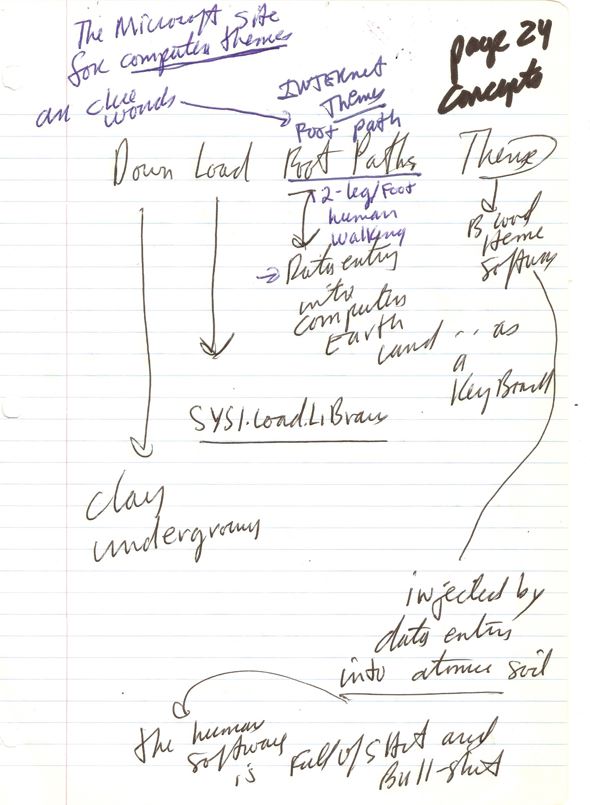 The Microsoft Site
for computer themes
page 24
concepts
an clue
words
INTERnet
Themes
Root path
Down Load Root Paths Theme
2-leg/Foot
human
walking
Blood
Heme
Software
Data entry
into
computer
Earth
Land ... as
a
KeyBoard
SYS1.Load.LiBrary
Clay
underground
injected by
data entry
into atomic soil
the human
software
is Full of SHit and
Bull-shit